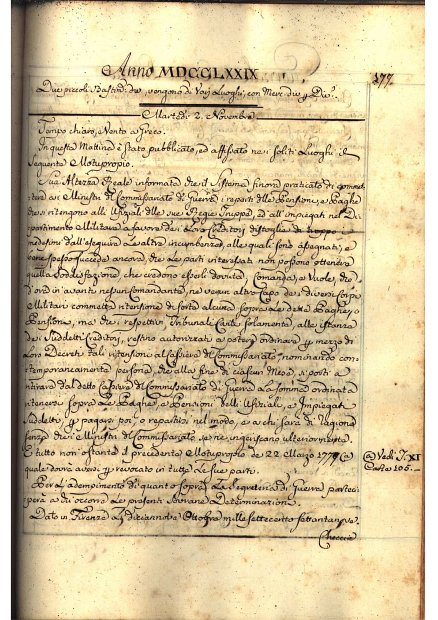 Anno MDCCLXXIX
177.
Due piccoli Bastim.ti che vengono da Varj Luoghi, con Merc. div. p Div.i
Martedì 2. Novembre
Tempo chiaro, Vento a Greco.
In questa Mattina è stato pubblicato, ed affissato nei soliti Luoghi il
seguente Motuproprio.
Sua Altezza Reale informata che il Sistema finora praticato di commet
tere ai Ministri del Commissariato di Guerra i reparti delle Pensioni, e Paghe
che si ritengono alli Ufiziali delle sue Regie Truppe, ed all'impiegati nel Di
partimento Militare a favore dei Loro Creditori distoglie di troppo i
medesimi dall'eseguire le altre incumbenze, alle quali sono assegnati, e
bene spesso succede ancora, che le parti interessate non possono ottenere
quella sodisfazione, che credono esserli dovuta; Comanda, e Vuole, che
d'ora in avanti nessun Comandante ne verun altro Capo dei diversi Corpi
Militari commetta ritenzione di sorta alcuna sopra le dette Paghe, o
Pensioni, ma che i respettivi Tribunali tanto solamente alle istanze
dei suddetti Creditori, restino autorizzati a poter ordinare p mezzo di
Loro Decreti tali ritenzioni al Cassiere del Commissariato nominando con
temporaneamente persona che alla fine di ciascun Mese si porti a
ritirare dal detto Cassiere del Commissariato di Guerra la somma ordinata
ritenersi sopra le Paghe, e Pensioni delli Ufiziali, e Impiegati
suddetti, p pagarsi poi, o repartirsi nel modo, e a chi sarà di ragione
senza che i Ministri del Commissariato se ne ingeriscano ulteriormente.
E tutto non ostante il precedente Motuproprio de 22 Marzo 1779 (a
quale dovrà aversi p revocato in tutte le sue parti.
(a Vedi T. XI
Carte 106.
Per l'adempimento di quanto sopra La Segreteria di Guerra parteci
perà a chi occorre le presenti Sovrane Determinazioni.
Dato in Firenze Li diciannove Ottobre mille settecento settantanove.